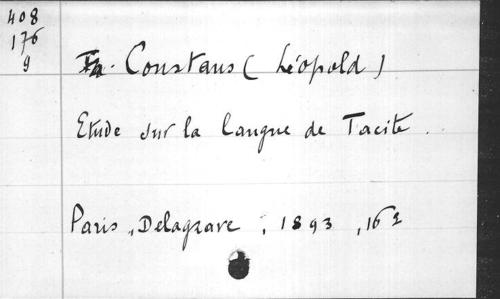 408
176
9
Constans ( Léopold )
Etude sur la langue de Tacite.
Paris, Delagrave, 1893, 16º